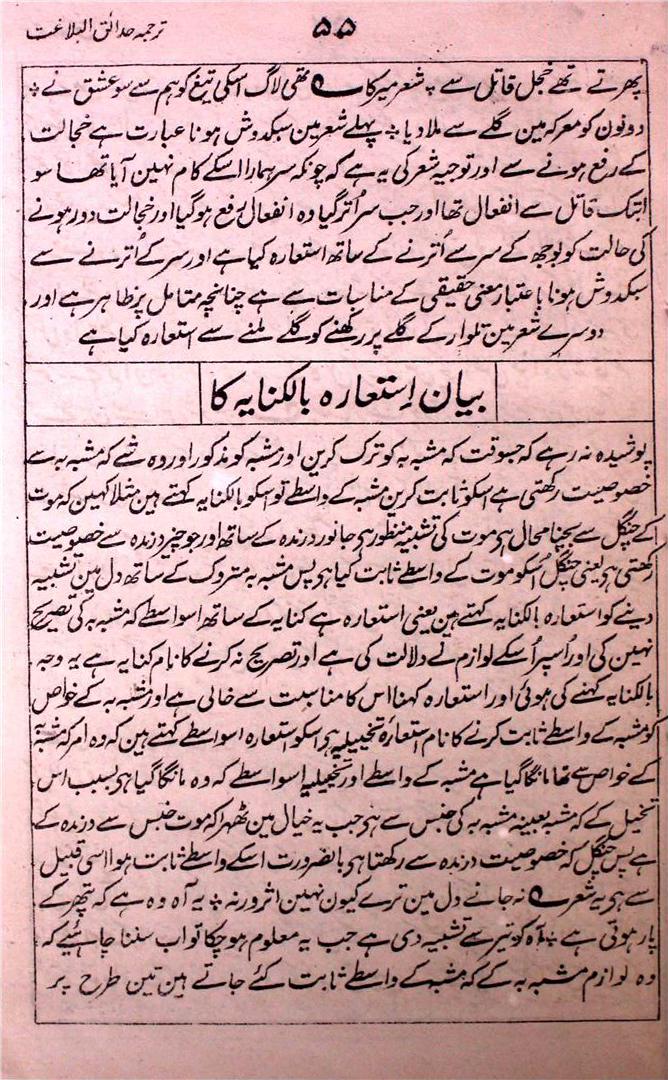 ترجمہ حدائق البلاغت
۵۵
پھرتے تھے خجل قاتل سے ٭ شعر میر کا ؎ تھی لاگ اسکی تیغ کو ہم سے سو عشق نے ٭
دونون کو معرکہ مین گلے سے ملا دیا ٭ پہلے شعر مین سبکدوش ہونا عبارت ہے خجالت
کے رفع ہونے سے اور توجیہ شعر کی یہ ہے کہ چونکہ سر ہمارا اسکے کام نہین آیا تھا سو
ابتک قاتل سے انفعال تھا اور جب سر اُتر گیا وہ انفعال رفع ہو گیا اور خجالت دور ہونے
کی حالت کو بوجھ کے سر سے اُترنے کے ساتھ استعارہ کیا ہے اور سر کے اُترنے سے
سبکدوش ہونا باعتبار معنی حقیقی کے مناسبات سے ہے چنانچہ متامل پر ظاہر ہے اور
دوسرے شعر مین تلوار کے گلے پر رکھنے کو گلے ملنے سے استعارہ کیا ہے
بیان اِستعارہ بالکنایہ کا
پوشیدہ نہ رہے کہ جسوقت کہ مشبہ بہ کو ترک کرین اور مشبہ کو مذکور اور وہ شے کہ مشبہ بہ سے
خصوصیت رکھتی ہے اسکو ثابت کرین مشبہ کے واسطے تو اسکو بالکنایہ کہتے ہین مثلا کہین کہ موت
کے چنگل سے بچنا محال ہی موت کی تشبیہ منظور ہی جانور درندہ کے ساتھ اور جو چیز درندہ سے خصوصیت
رکھتی ہی یعنی چنگل اُسکو موت کے واسطے ثابت کیا ہی پس مشبہ بہ متروک کے ساتھ دل مین تشبیہ
دینے کو استعارہ بالکنایہ کہتے ہین یعنی استعارہ ہے کنایہ کے ساتھ اسواسطے کہ مشبہ بہ کی تصریح
نہین کی اور اُسپر اُسکے لوازم نے دلالت کی ہے اور تصریح نہ کرنے کا نام کنایہ ہے یہ وجہ
بالکنایہ کہنے کی ہوئی اور استعارہ کہنا اس کا مناسبت سے خالی ہے اور مشبہ بہ کے خواص
کو مشبہ کے واسطے ثابت کرنے کا نام استعارہ تخییلیہ ہی اسکو استعارہ اسواسطے کہتے ہین کہ وہ امر کہ مشبہ بہ
کے خواص سے تھا مانگا گیا ہے مشبہ کے واسطے اور تخییلیہ اسواسطے کہ وہ مانگا گیا ہی بسبب اس
تخیل کے کہ مشبہ بعینہ مشبہ بہ کی جنس سے ہی جب یہ خیال مین ٹھہرا کہ موت جنس سے درندہ کے
ہے پس چنگل کہ خصوصیت درندہ سے رکھتا ہی بالضرورت اسکے واسطے ثابت ہوا اسی قبیل
سے ہی یہ شعر ؎ نہ جانے دل مین ترے کیون نہین اثر ورنہ ٭ یہ آہ وہ ہے کہ پتھر کے
پار ہوتی ہے ٭ آہ کو تیر سے تشبیہ دی ہے جب یہ معلوم ہو چکا تو اب سننا چاہئیے کہ
وہ لوازم مشبہ بہ کے کہ مشبہ کے واسطے ثابت کئے جاتے ہین تین طرح پر